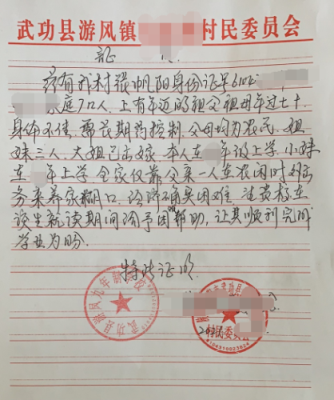 武功县游风镇 村民委员会
证
兹有我村张帆阳身份证号610
家庭7口人,上有年迈的祖父祖母年过七十,
身体不佳,需长期药控制,父母均为农民,姐
妹三人,大姐已出嫁,本人在 年级上学,小妹
在 年级上学,全家仅靠父亲一人在农闲时外出
务来养家糊口,经济确实困难,望贵校在
该生就读期间给予 帮助,让其顺利完成
学业为盼。
特此证明
武功县游风
村民委员会